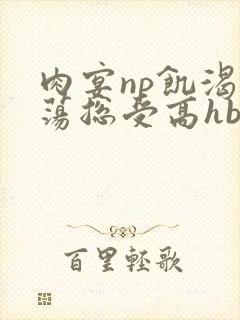 肉宴np飢渴
蕩總受高hb
百里輕歌